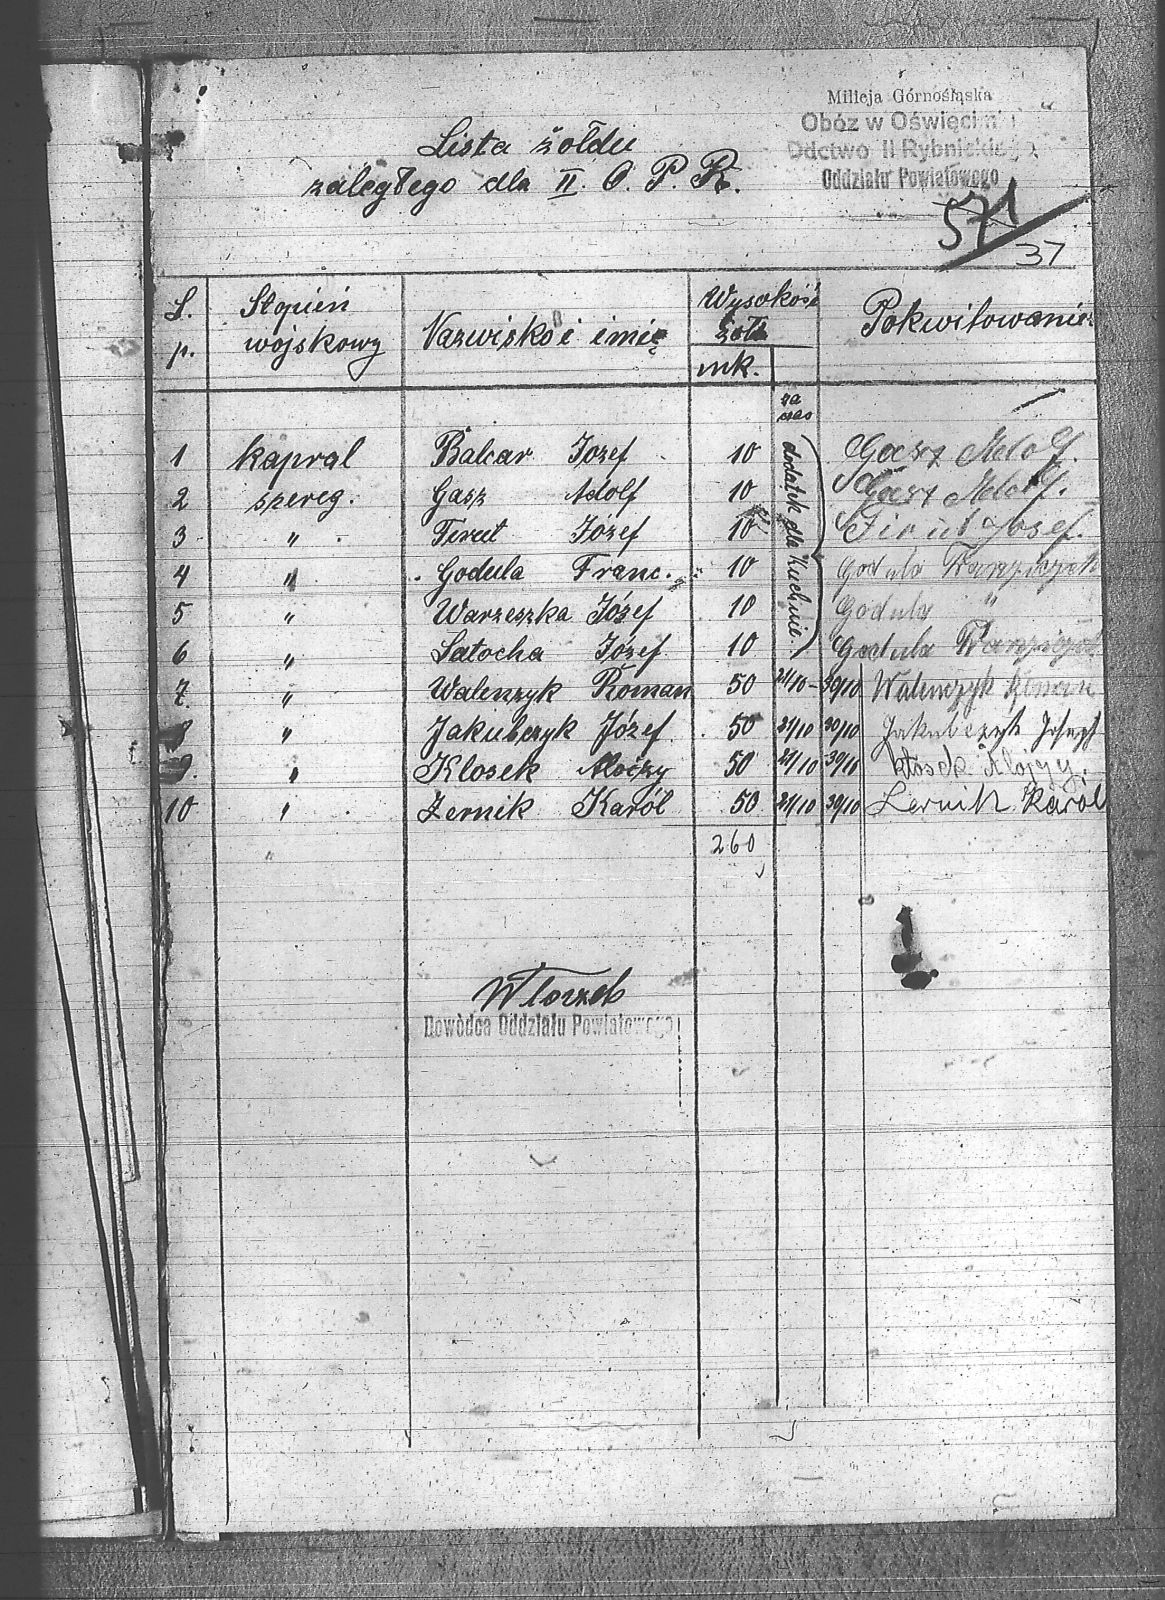 Milicja Górnośląska
Obóz w Oświęcimiu
Ddctwo II Rybnickiego
Oddziału Powiatowego
Lista żołdu
zaległego dla II. O. P. R.
571
37
L. p. Stopień wojskowy Nazwisko i imię Wysokość żołd. mk. Pokwitowanie
za czas
dodatek dla kuchnie.
1 kapral Balcar Jozef 10 Gasz Adolf.
2 szereg. Gasz Adolf 10 Gasz Adolf.
3 " Firut Józef 10 Firut Josef.
4 " Godula Franc. 10 Godula Franziszek
5 " Warzeszka Józef 10 Godula "
6 " Latocha Józef 10 Godula Franziszek
7. " Walenzyk Roman 50 21/10 - 30/10 Walenczyk Roman
8 " Jakubczyk Józef. 50 21/10 30/10 Jakubczyk Joseph
9. " Klosek Aloizy 50 21/10 30/10 Klosek Alojzy.
10 " Zernik Karól 50 21/10 30/10 Zernik Karól
260
Dowódca Oddziału Powiatowego